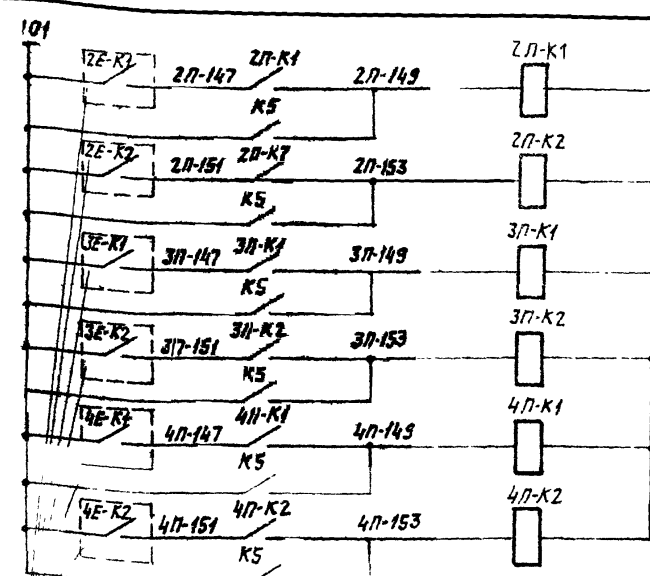 101
2Е-К1 2П-147 2П-К1 2П-149 2П-К1
К5
2Е-К2 2П-151 2П-К2 2П-153 2П-К2
К5
3Е-К1 3П-147 3П-К1 3П-149 3П-К1
К5
3Е-К2 3П-151 3П-К2 3П-153 3П-К2
К5
4Е-К1 4П-147 4П-К1 4П-149 4П-К1
К5
4Е-К2 4П-151 4П-К2 4П-153 4П-К2
К5